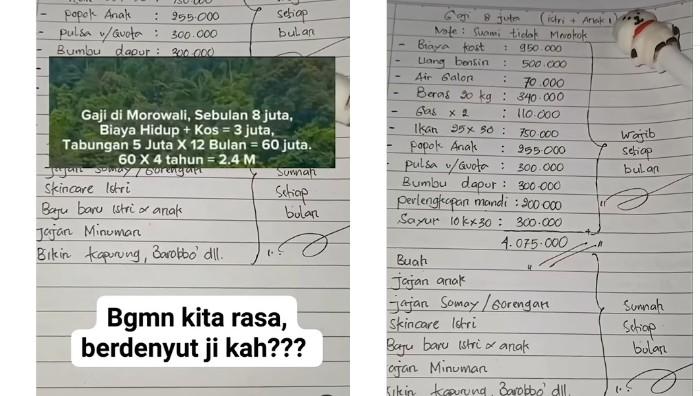 - popok Anak : 255.000
- pulsa v/Quota : 300.000
- Bumbu dapur : 300.000
setiap
bulan
Gaji di Morowali, Sebulan 8 juta,
Biaya Hidup + Kos = 3 juta,
Tabungan 5 Juta X 12 Bulan = 60 juta.
60 X 4 tahun = 2.4 M
jajan Somay / Gorengan
Skincare Istri
Baju baru istri & anak
Jajan Minuman
Bikin kapurung, Barobbo' dll.
Sunnah
Setiap
bulan
Bgmn kita rasa,
berdenyut ji kah???
Gaji 8 juta (istri + Anak 1
Note : Suami tidak Merokok
- Biaya kost : 950.000
- Uang bensin : 500.000
- Air Galon : 70.000
- Beras 20 kg : 340.000
- Gas x 2 : 110.000
- Ikan 25 x 30 : 750.000
- popok Anak : 255.000
- pulsa v/Quota : 300.000
Bumbu dapur : 300.000
perlengkapan mandi : 200.000
Sayur 10k x 30 : 300.000
4.075.000
wajib
setiap
bulan
Buah
jajan anak
jajan Somay / Gorengan
Skincare Istri
Baju baru istri & anak
ajan Minuman
Bikin kapurung, Barobbo' dll.
Sunnah
Setiap
bulan